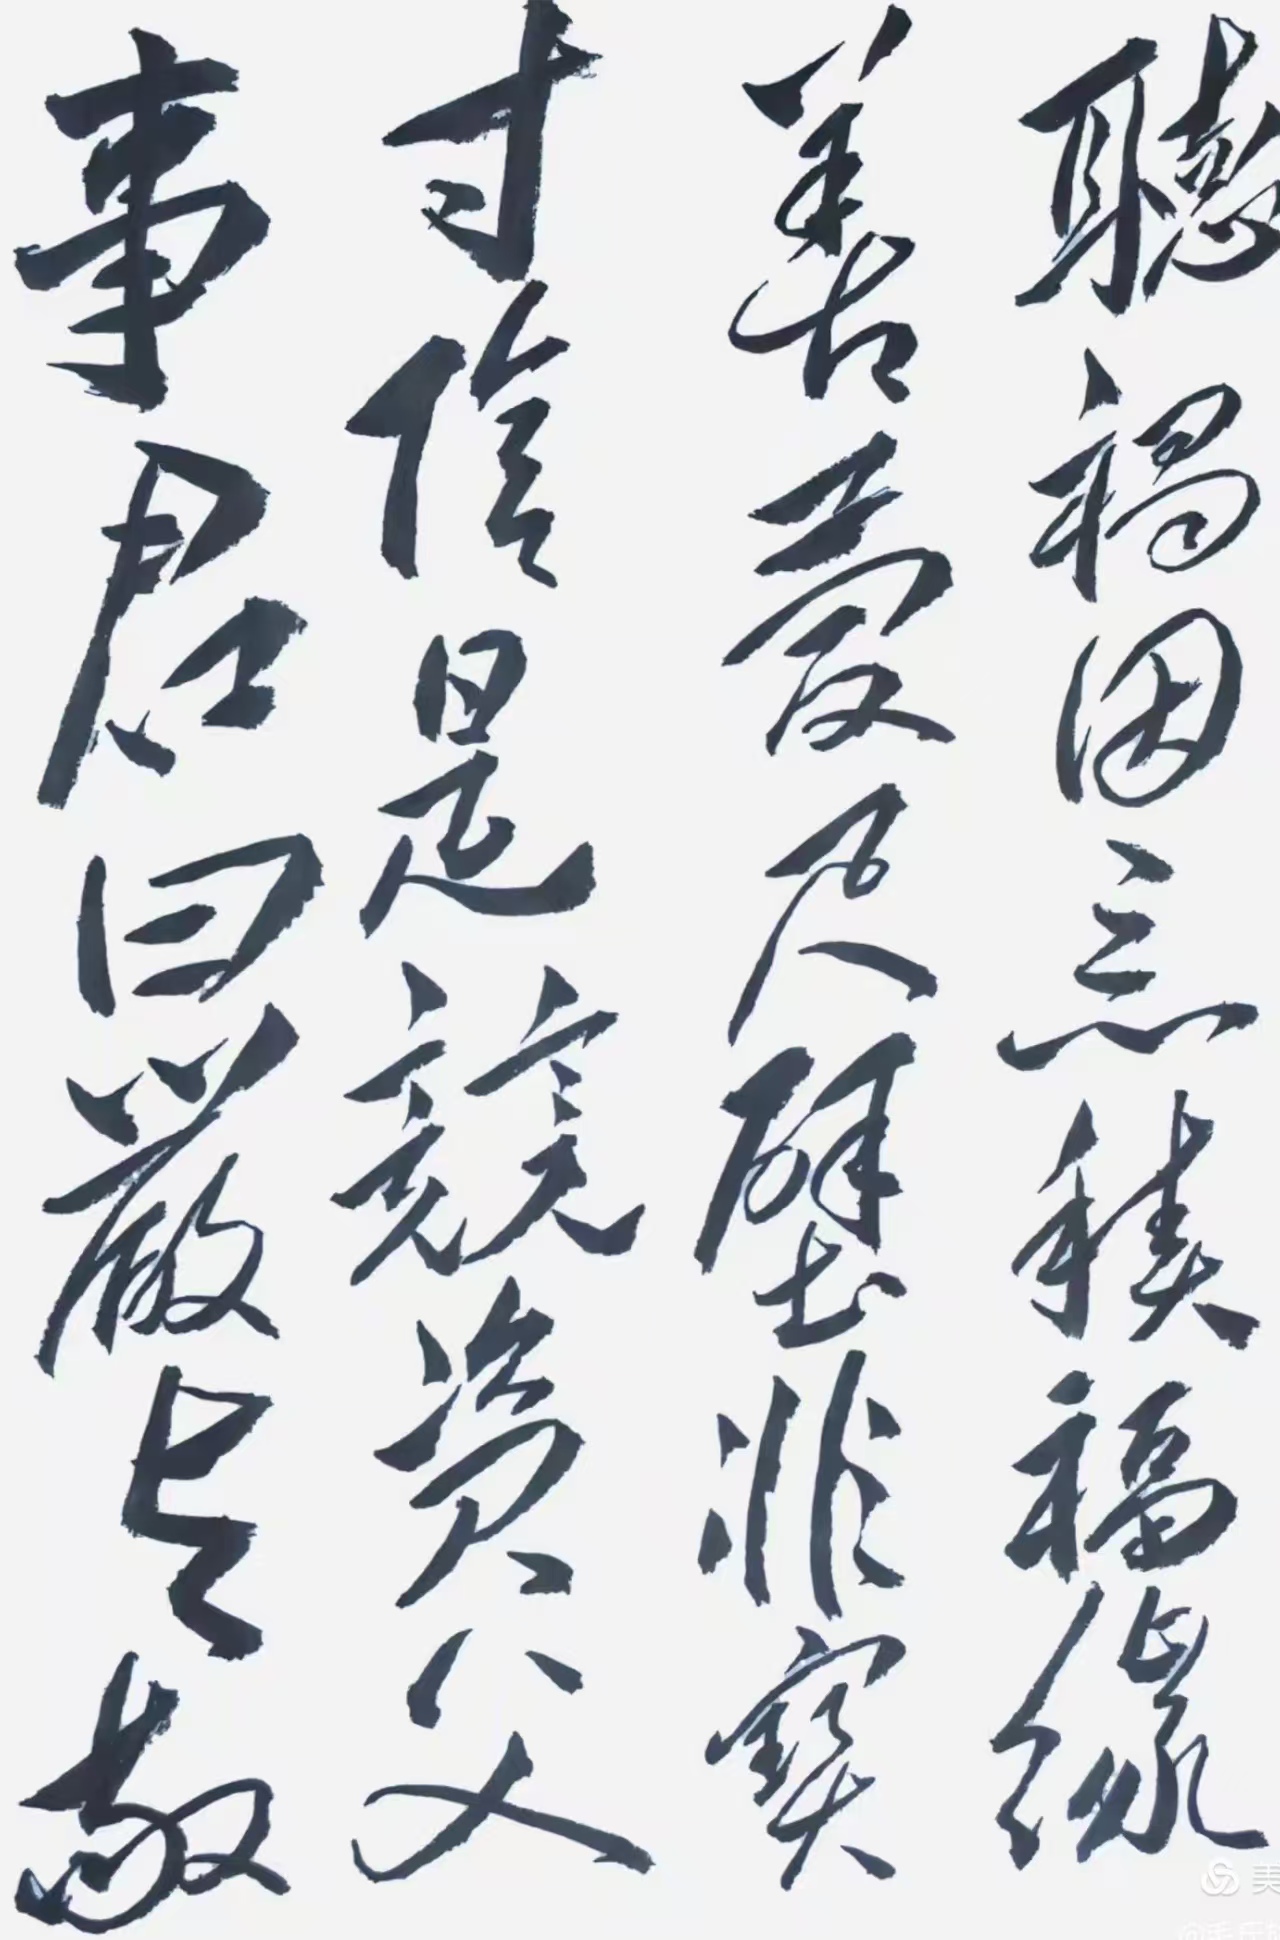 聽禍因惡積福緣
善慶尺璧非寶
寸陰是競資父
事君曰嚴与敬